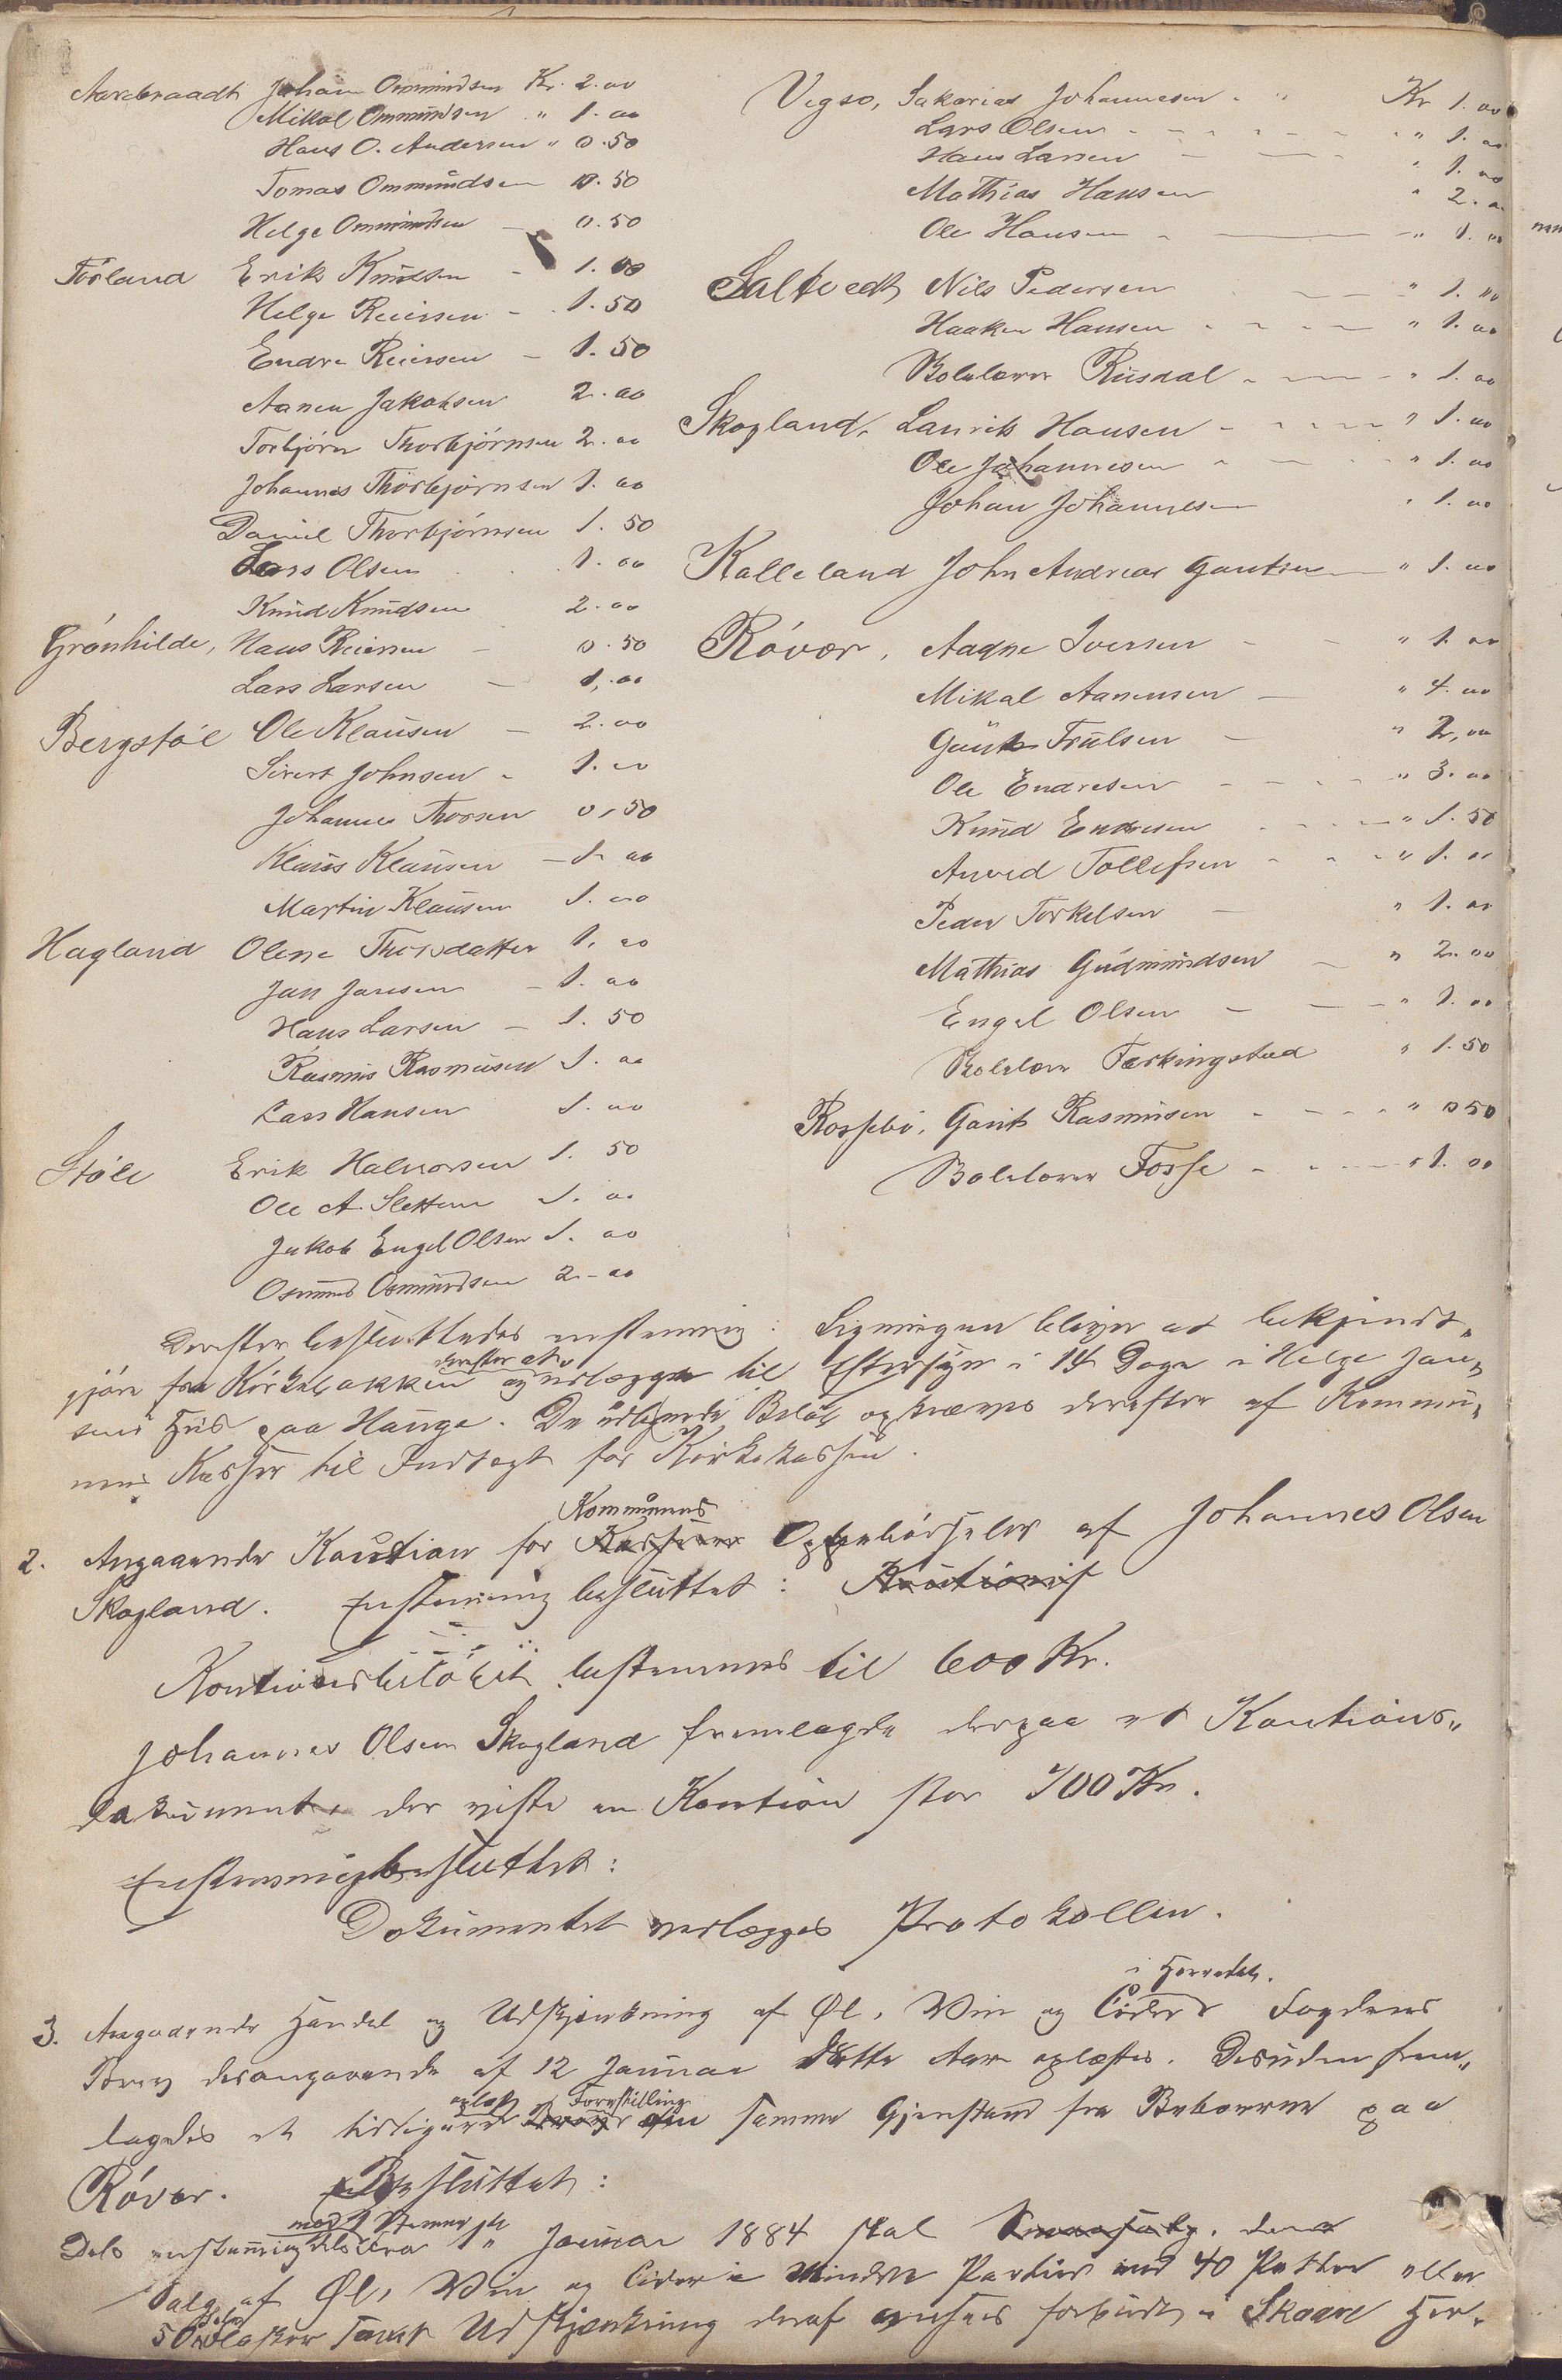 Aarebraadt Johan Ommundsen Kr. 2.00
Mikal Ommundsen " 1.00
Hans O. Andersen " 0.50
Tomas Ommundsen 0.50
Helge Ommundsen - 0.50
Førland Erik Knudsen - 1.00
Helge Reiersen - 1.50
Endre Reiersen - 1.50
Aanen Jakobsen 2.00
Torbjørn Thorbjørnsen 2.00
Johannes Thorbjørnsen 1.00
Daniel Thorbjørnsen 1.50
Lars Olsen 1.00
Knud Knudsen 2.00
Grønhilde, Hans Reiersen - 0.50
Lars Larsen - 1,00
Bergstøl Ole Klausen - 2.00
Sivert Johnsen - 1.00
Johannes Thorsen 0,50
Klaus Klausen - 1.00
Martin Klausen 1.00
Hagland Olene Thorsdatter 1.00
Jan Jansen - 1.00
Hans Larsen - 1.50
Rasmus Rasmusen 1.00
Lars Hansen 1.00
Støle Erik Halvorsen 1.50
Ole A. Sletten 1.00
Jakob Engel Olsen 1.00
Osmund Osmundsen 2-00
Vegso, Sakarias Johannesen - " Kr 1.00
Lars Olsen - " 1.00
Hans Larsen - " 1.00
Mathias Hansen " 2.00
Ole Hansen - " 1.00
Saltvedt Nils Pedersen " 1.00
Haaken Hansen - " 1.00
Skolelærer Riisdal - " 1.00
Skogland, Laurits Hansen - " 1.00
Ole Johannesen - " 1.00
Johan Johannesen " 1.00
Kalleland John Andreas Gautsen " 1.00
Røvær, Aagne Iversen - " 1.00
Mikal Aanensen - " 4.00
Gaute Trulsen - " 2,00
Ole Endresen - " 3.00
Knud Endresen - " 1.50
Anved Tollefsen - " 1.00
Peder Torkelsen - " 1.00
Mathias Gudmundsen - " 2.00
Engel Olsen - " 1.00
Skolelærer Færkingstad " 1.50
Rossebø, Gaut Rasmusen - " 0 50
Skolelærer Fosse - " 1.00
Derefter besluttedes enstemmig: Ligningen bliver at bekjendt„
gjøre fra Kirkebakken derefter at og udlægges til Eftersyn i 14 Dage i Helge Jan„
sens Hus paa Hauge. De udlignede Beløb opkræves derefter af Kommu„
nens Kasser til Indtægt for Kirkekassen.
2. Angaaende Kaution for Kasserer Kommunens Oppebørseler af Johannes Olsen
Skogland. Enstemmig besluttet: Kautionis
Kautionsbeløbet bestemmes til 600 Kr.
Johannes Olsen Skogland fremlagde derpaa et Kautions„
dokument, der viste en Kaution stor 700 Kr.
Enstemmig besluttet:
Dokumentet vedlægges Protokollen.
3. Angaaende Handel og Udskjænkning af Øl, Vin og Cider i Herredet. Fogdens
Brev desangaaende af 12 Januar dette Aar oplæstes. Desuden frem„
lagdes et tidligere oplæst Forestilling om samme Gjenstand fra Beboerne paa
Røvær. Besluttet:
Dels enstemmig dels med Stemmer fra 1ste Januar 1884 skal Smaasalg.
Salg af Øl, Vin og Cider i Mindre Partier end 40 Potter eller
50 hele Flasker samt Udskjænkning deraf ansees forbudt i Skaare Her„